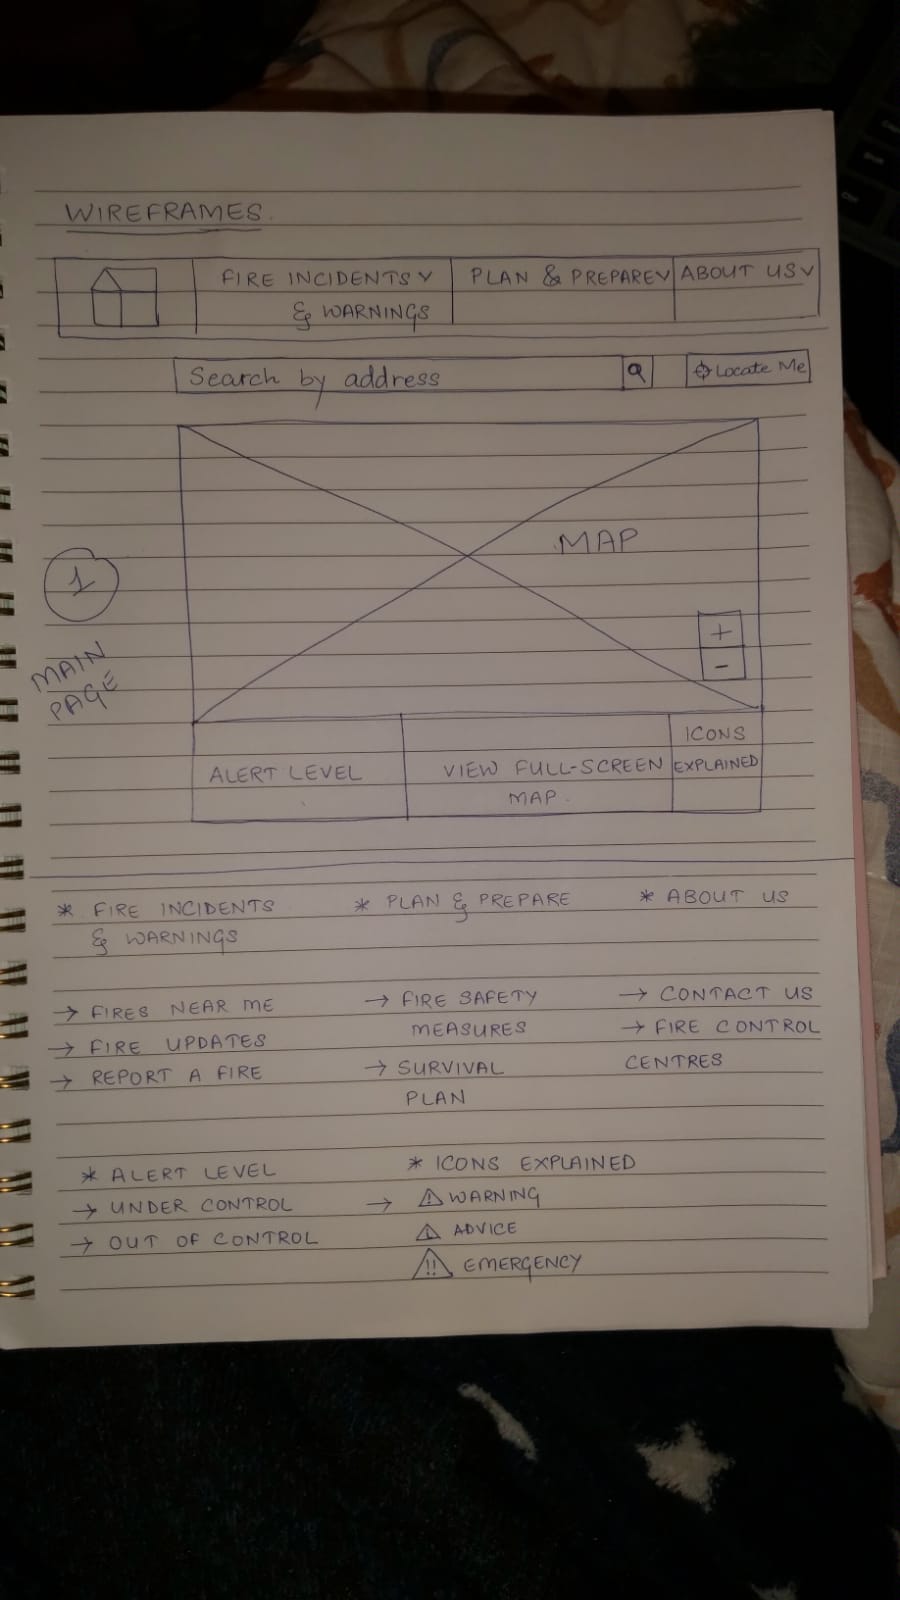 WIREFRAMES.
FIRE INCIDENTS v
& WARNINGS
PLAN & PREPARE v
ABOUT US v
Search by address
Locate Me
MAP
1
+
-
MAIN
PAGE
ALERT LEVEL
VIEW FULL-SCREEN
MAP.
ICONS
EXPLAINED
* FIRE INCIDENTS
& WARNINGS
→ FIRES NEAR ME
→ FIRE UPDATES
→ REPORT A FIRE
* PLAN & PREPARE
→ FIRE SAFETY
MEASURES
→ SURVIVAL
PLAN
* ABOUT US
→ CONTACT US
→ FIRE CONTROL
CENTRES
* ALERT LEVEL
→ UNDER CONTROL
→ OUT OF CONTROL
* ICONS EXPLAINED
→ ! WARNING
! ADVICE
!! EMERGENCY